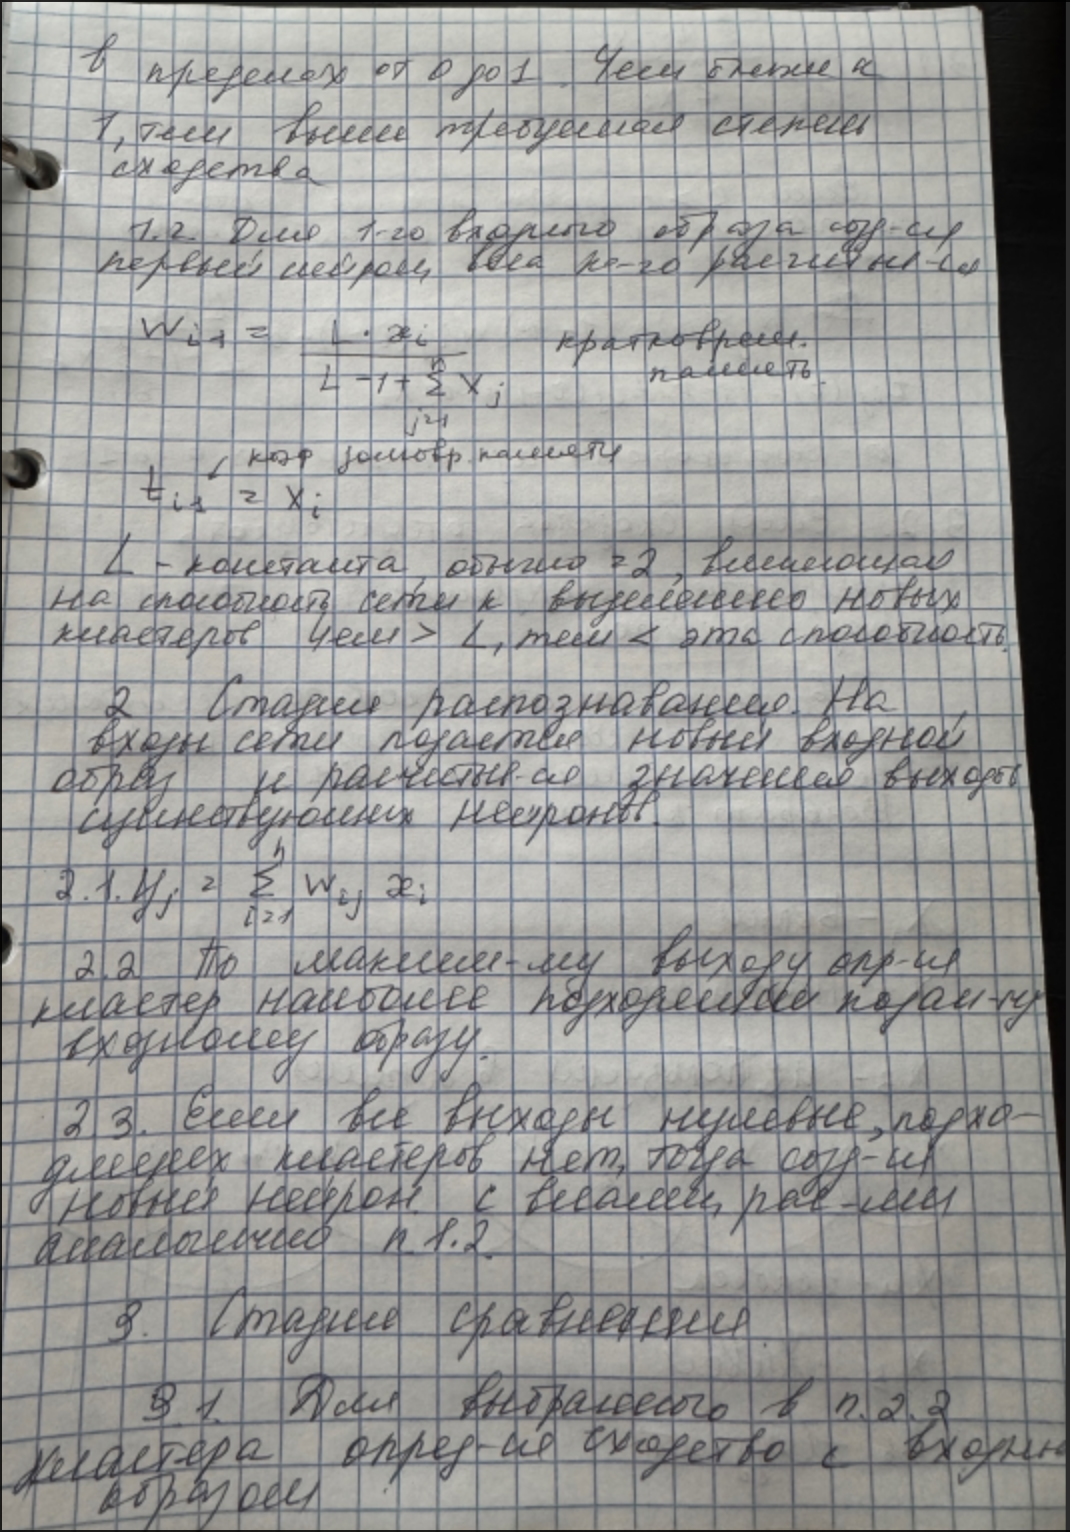 в
пределах от 0 до 1. Чем ближе к
1, тем выше требуемая степень
сходства
1.2. Для 1-го входного образа созд-ся
первый нейрон, веса ко-го расчитыв-ся
Wi1 = L · xi / (L - 1 + Σ(j=1..n) Xj) кратковрем.
память.
коэф долговр. памяти
ti1 = Xi
L - константа, обычно = 2, влияющая
на способность сети к выделению новых
кластеров Чем > L, тем < эта способность.
2 Стадия распознавания. На
входы сети подается новый входной
образ и расчитыв-ся значения выходов
существующих нейронов.
2.1. Yj = Σ(i=1..n) Wij xi
2.2 По максим-му выходу опр-ся
кластер наиболее подходящий подан-му
входному образу.
2.3. Если все выходы нулевые, подхо-
дящих кластеров нет, тогда созд-ся
новый нейрон с весами, рас-ми
аналогично п. 1.2.
3. Стадия сравнения
3.1. Для выбранного в п. 2.2
кластера опред-ся сходство с входным
образом